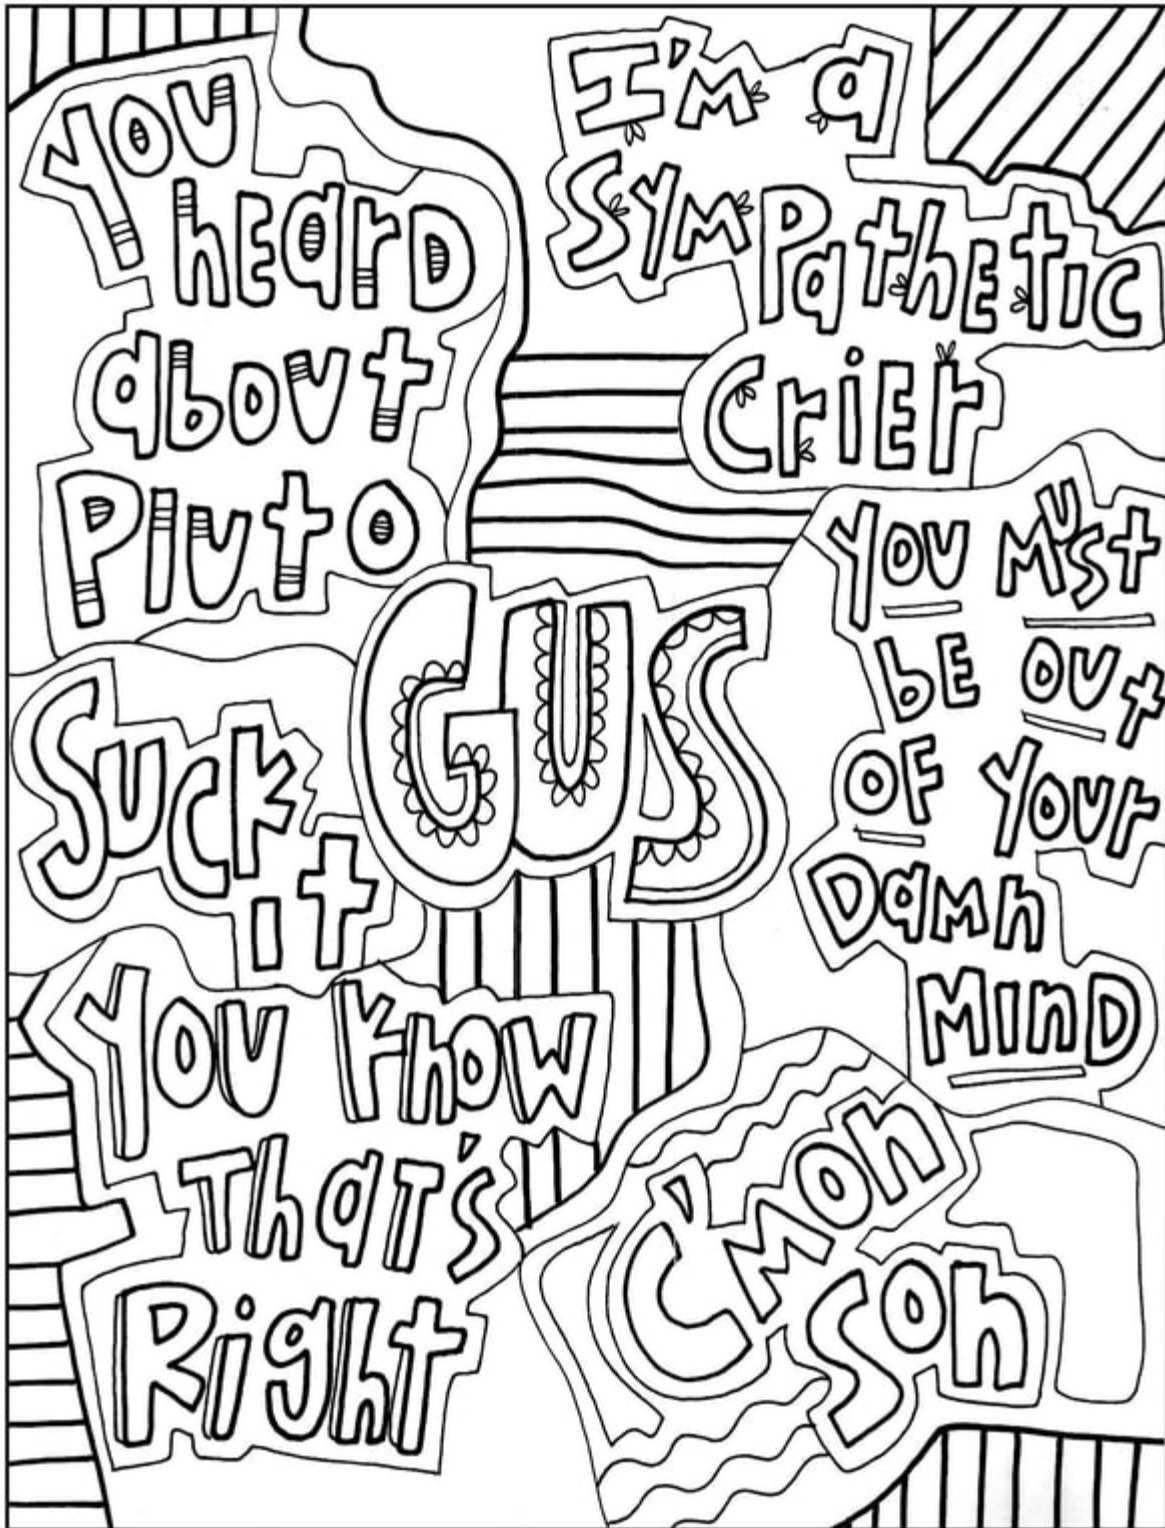 You
heard
about
Pluto
I'm a
Sympathetic
Crier
GUS
You Must
be out
of Your
Damn
Mind
Suck
it
You Know
That's
Right
C'mon
Son